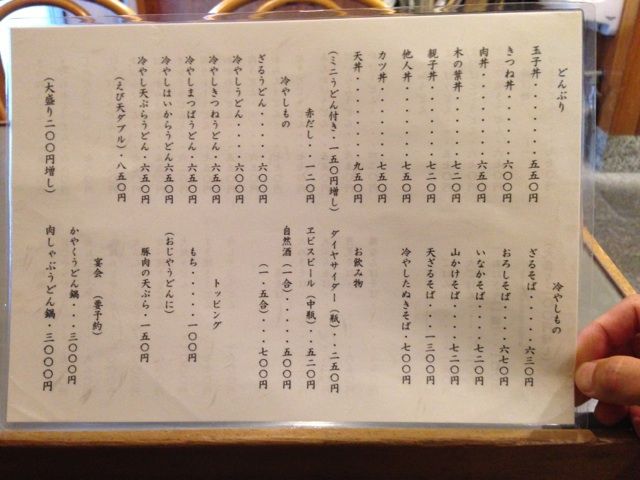 どんぶり
玉子丼・・・・・・・五五〇円
きつね丼・・・・・・六〇〇円
肉丼・・・・・・・・六五〇円
木の葉丼・・・・・・七二〇円
親子丼・・・・・・・七二〇円
他人丼・・・・・・・七五〇円
カツ丼・・・・・・・七五〇円
天丼・・・・・・・・九五〇円
(ミニうどん付き・一五〇円増し)
赤だし・・一二〇円
冷やしもの
ざるうどん・・・・・六〇〇円
冷やしうどん・・・・六〇〇円
冷やしきつねうどん・六五〇円
冷やしまつばうどん・六五〇円
冷やしはいからうどん六五〇円
冷やし天ぷらうどん・六五〇円
(えび天ダブル)・八五〇円
(大盛り二〇〇円増し)
冷やしもの
ざるそば・・・・・六三〇円
おろしそば・・・・六七〇円
いなかそば・・・・七二〇円
山かけそば・・・・七二〇円
天ざるそば・・・一三〇〇円
冷やしたぬきそば・七〇〇円
お飲み物
ダイヤサイダー(瓶)・・二五〇円
ヱビスビール(中瓶)・・五二〇円
自然酒(一合)・・・・・五〇〇円
(一・五合)・・・七〇〇円
トッピング
もち・・・・・・一〇〇円
(おじやうどんに)
豚肉の天ぷら・一五〇円
宴会 (要予約)
かやくうどん鍋・・・三〇〇〇円
肉しゃぶうどん鍋・・三〇〇〇円